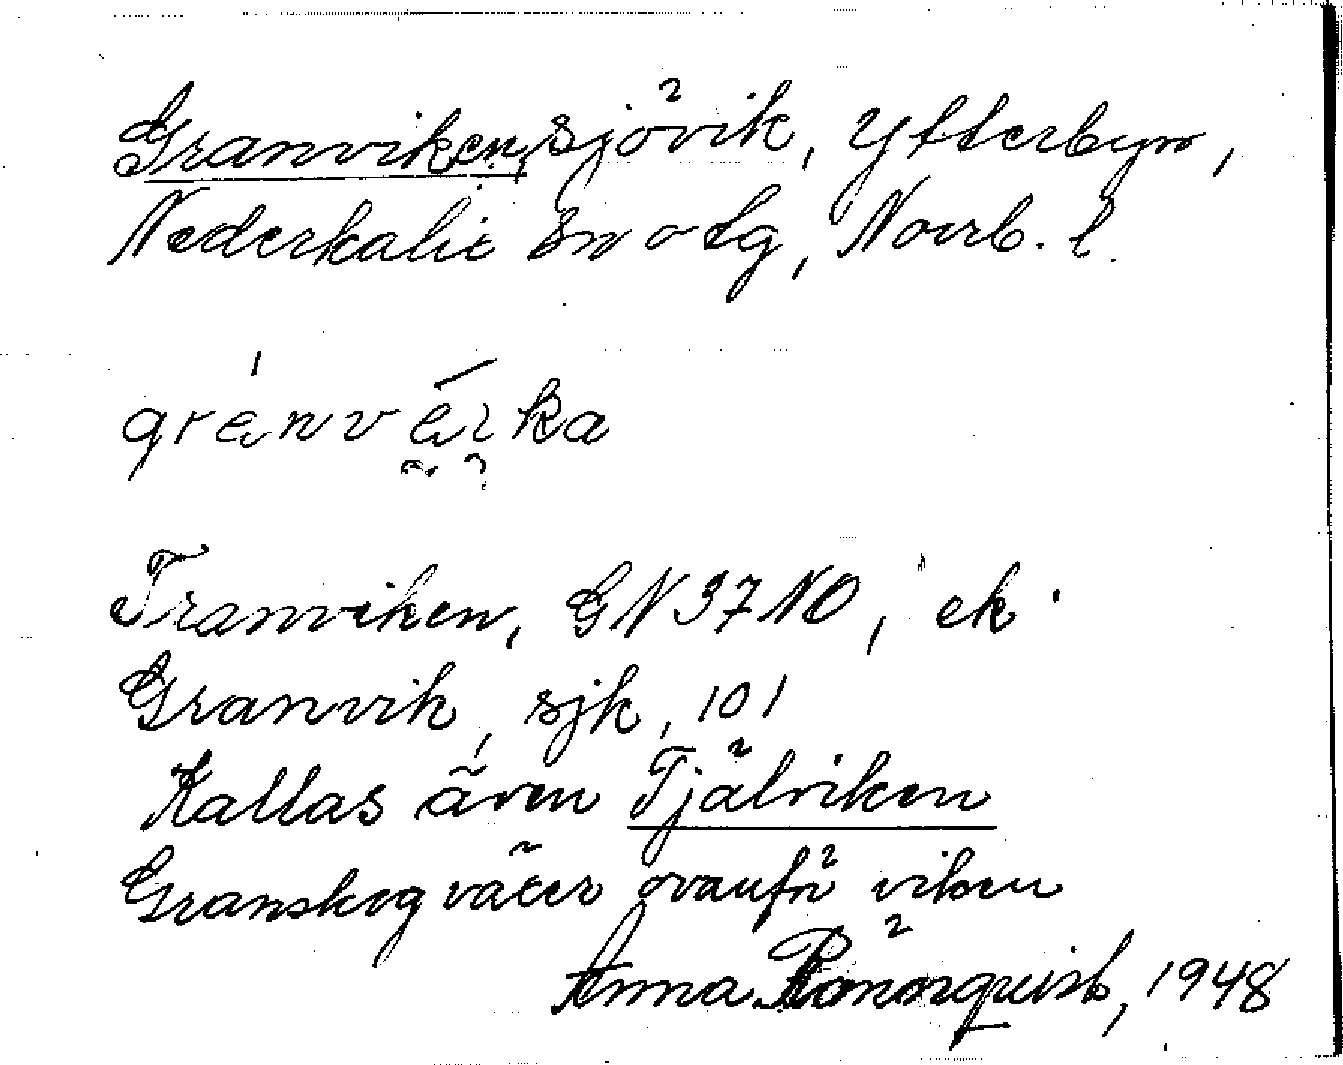 Granviken, sjövik, Ytterbyn,
Nederkalix sn o tg, Norrb. l.
gránvéika
Tranviken, GN37NO, ek
Granvik, sjk, 101
Kallas även Tjälviken
Granskog växer ovanför viken
Anna Rönnquist, 1948